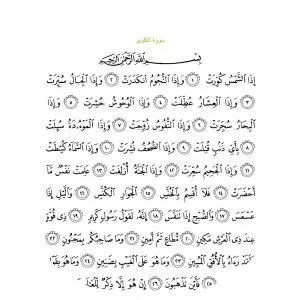 سورة التكوير
بِسْمِ اللَّهِ الرَّحْمَٰنِ الرَّحِيمِ
إِذَا الشَّمْسُ كُوِّرَتْ ١ وَإِذَا النُّجُومُ انْكَدَرَتْ ٢ وَإِذَا الْجِبَالُ سُيِّرَتْ
٣ وَإِذَا الْعِشَارُ عُطِّلَتْ ٤ وَإِذَا الْوُحُوشُ حُشِرَتْ ٥ وَإِذَا
الْبِحَارُ سُجِّرَتْ ٦ وَإِذَا النُّفُوسُ زُوِّجَتْ ٧ وَإِذَا الْمَوْءُودَةُ سُئِلَتْ
٨ بِأَيِّ ذَنْبٍ قُتِلَتْ ٩ وَإِذَا الصُّحُفُ نُشِرَتْ ١٠ وَإِذَا السَّمَاءُ كُشِطَتْ
١١ وَإِذَا الْجَحِيمُ سُعِّرَتْ ١٢ وَإِذَا الْجَنَّةُ أُزْلِفَتْ ١٣ عَلِمَتْ نَفْسٌ مَا
أَحْضَرَتْ ١٤ فَلَا أُقْسِمُ بِالْخُنَّسِ ١٥ الْجَوَارِ الْكُنَّسِ ١٦ وَاللَّيْلِ إِذَا
عَسْعَسَ ١٧ وَالصُّبْحِ إِذَا تَنَفَّسَ ١٨ إِنَّهُ لَقَوْلُ رَسُولٍ كَرِيمٍ ١٩ ذِي قُوَّةٍ
عِنْدَ ذِي الْعَرْشِ مَكِينٍ ٢٠ مُطَاعٍ ثَمَّ أَمِينٍ ٢١ وَمَا صَاحِبُكُمْ بِمَجْنُونٍ ٢٢
وَلَقَدْ رَآهُ بِالْأُفُقِ الْمُبِينِ ٢٣ وَمَا هُوَ عَلَى الْغَيْبِ بِضَنِينٍ ٢٤ وَمَا هُوَ بِقَوْلِ
٢٥ فَأَيْنَ تَذْهَبُونَ ٢٦ إِنْ هُوَ إِلَّا ذِكْرٌ